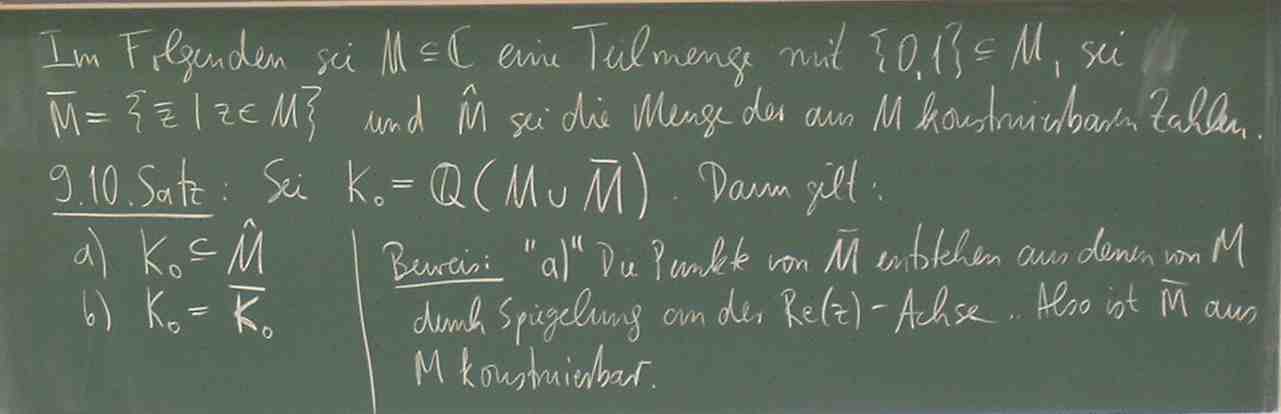 Im Folgenden sei M ⊆ ℂ eine Teilmenge mit {0,1} ⊆ M, sei
M̄ = {z̄ | z ∈ M} und M̂ sei die Menge der aus M konstruierbaren Zahlen.
9.10. Satz: Sei K₀ = ℚ(M ∪ M̄). Dann gilt:
a) K₀ ⊆ M̂
b) K₀ = K̄₀
Beweis: "a)" Die Punkte von M̄ entstehen aus denen von M
durch Spiegelung an der Re(z)-Achse.. Also ist M̄ aus
M konstruierbar.